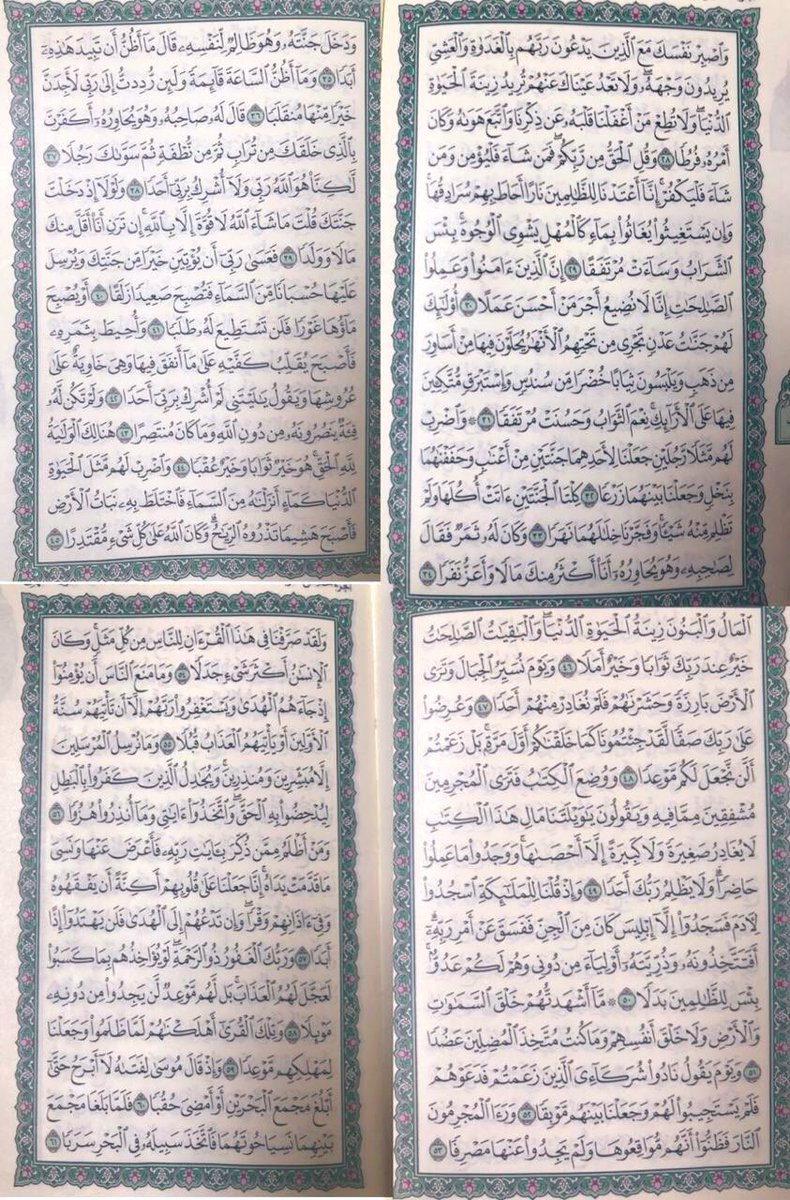 وَٱصۡبِرۡ نَفۡسَكَ مَعَ ٱلَّذِينَ يَدۡعُونَ رَبَّهُم بِٱلۡغَدَوٰةِ وَٱلۡعَشِيِّ
يُرِيدُونَ وَجۡهَهُۥۖ وَلَا تَعۡدُ عَيۡنَاكَ عَنۡهُمۡ تُرِيدُ زِينَةَ ٱلۡحَيَوٰةِ
ٱلدُّنۡيَاۖ وَلَا تُطِعۡ مَنۡ أَغۡفَلۡنَا قَلۡبَهُۥ عَن ذِكۡرِنَا وَٱتَّبَعَ هَوَىٰهُ وَكَانَ
أَمۡرُهُۥ فُرُطٗا ٢٨ وَقُلِ ٱلۡحَقُّ مِن رَّبِّكُمۡۖ فَمَن شَآءَ فَلۡيُؤۡمِن وَمَن
شَآءَ فَلۡيَكۡفُرۡۚ إِنَّآ أَعۡتَدۡنَا لِلظَّٰلِمِينَ نَارًا أَحَاطَ بِهِمۡ سُرَادِقُهَاۚ
وَإِن يَسۡتَغِيثُواْ يُغَاثُواْ بِمَآءٖ كَٱلۡمُهۡلِ يَشۡوِي ٱلۡوُجُوهَۚ بِئۡسَ
ٱلشَّرَابُ وَسَآءَتۡ مُرۡتَفَقًا ٢٩ إِنَّ ٱلَّذِينَ ءَامَنُواْ وَعَمِلُواْ
ٱلصَّٰلِحَٰتِ إِنَّا لَا نُضِيعُ أَجۡرَ مَنۡ أَحۡسَنَ عَمَلًا ٣٠ أُوْلَٰٓئِكَ
لَهُمۡ جَنَّٰتُ عَدۡنٖ تَجۡرِي مِن تَحۡتِهِمُ ٱلۡأَنۡهَٰرُ يُحَلَّوۡنَ فِيهَا مِنۡ أَسَاوِرَ
مِن ذَهَبٖ وَيَلۡبَسُونَ ثِيَابًا خُضۡرٗا مِّن سُندُسٖ وَإِسۡتَبۡرَقٖ مُّتَّكِـِٔينَ
فِيهَا عَلَى ٱلۡأَرَآئِكِۚ نِعۡمَ ٱلثَّوَابُ وَحَسُنَتۡ مُرۡتَفَقٗا ٣١ ۞ وَٱضۡرِبۡ
لَهُم مَّثَلٗا رَّجُلَيۡنِ جَعَلۡنَا لِأَحَدِهِمَا جَنَّتَيۡنِ مِنۡ أَعۡنَٰبٖ وَحَفَفۡنَٰهُمَا
بِنَخۡلٖ وَجَعَلۡنَا بَيۡنَهُمَا زَرۡعٗا ٣٢ كِلۡتَا ٱلۡجَنَّتَيۡنِ ءَاتَتۡ أُكُلَهَا وَلَمۡ
تَظۡلِم مِّنۡهُ شَيۡـٔٗاۚ وَفَجَّرۡنَا خِلَٰلَهُمَا نَهَرٗا ٣٣ وَكَانَ لَهُۥ ثَمَرٞ فَقَالَ
لِصَٰحِبِهِۦ وَهُوَ يُحَاوِرُهُۥٓ أَنَا۠ أَكۡثَرُ مِنكَ مَالٗا وَأَعَزُّ نَفَرٗا ٣٤
وَدَخَلَ جَنَّتَهُۥ وَهُوَ ظَالِمٞ لِّنَفۡسِهِۦ قَالَ مَآ أَظُنُّ أَن تَبِيدَ هَٰذِهِۦٓ
أَبَدٗا ٣٥ وَمَآ أَظُنُّ ٱلسَّاعَةَ قَآئِمَةٗ وَلَئِن رُّدِدتُّ إِلَىٰ رَبِّي لَأَجِدَنَّ
خَيۡرٗا مِّنۡهَا مُنقَلَبٗا ٣٦ قَالَ لَهُۥ صَاحِبُهُۥ وَهُوَ يُحَاوِرُهُۥٓ أَكَفَرۡتَ
بِٱلَّذِي خَلَقَكَ مِن تُرَابٖ ثُمَّ مِن نُّطۡفَةٖ ثُمَّ سَوَّىٰكَ رَجُلٗا ٣٧
لَّٰكِنَّا۠ هُوَ ٱللَّهُ رَبِّي وَلَآ أُشۡرِكُ بِرَبِّيٓ أَحَدٗا ٣٨ وَلَوۡلَآ إِذۡ دَخَلۡتَ
جَنَّتَكَ قُلۡتَ مَا شَآءَ ٱللَّهُ لَا قُوَّةَ إِلَّا بِٱللَّهِۚ إِن تَرَنِ أَنَا۠ أَقَلَّ مِنكَ
مَالٗا وَوَلَدٗا ٣٩ فَعَسَىٰ رَبِّيٓ أَن يُؤۡتِيَنِ خَيۡرٗا مِّن جَنَّتِكَ وَيُرۡسِلَ
عَلَيۡهَا حُسۡبَانٗا مِّنَ ٱلسَّمَآءِ فَتُصۡبِحَ صَعِيدٗا زَلَقًا ٤٠ أَوۡ يُصۡبِحَ
مَآؤُهَا غَوۡرٗا فَلَن تَسۡتَطِيعَ لَهُۥ طَلَبٗا ٤١ وَأُحِيطَ بِثَمَرِهِۦ
فَأَصۡبَحَ يُقَلِّبُ كَفَّيۡهِ عَلَىٰ مَآ أَنفَقَ فِيهَا وَهِيَ خَاوِيَةٌ عَلَىٰ
عُرُوشِهَا وَيَقُولُ يَٰلَيۡتَنِي لَمۡ أُشۡرِكۡ بِرَبِّيٓ أَحَدٗا ٤٢ وَلَمۡ تَكُن لَّهُۥ
فِئَةٞ يَنصُرُونَهُۥ مِن دُونِ ٱللَّهِ وَمَا كَانَ مُنتَصِرًا ٤٣ هُنَالِكَ ٱلۡوَلَٰيَةُ
لِلَّهِ ٱلۡحَقِّۚ هُوَ خَيۡرٞ ثَوَابٗا وَخَيۡرٌ عُقۡبٗا ٤٤ وَٱضۡرِبۡ لَهُم مَّثَلَ ٱلۡحَيَوٰةِ
ٱلدُّنۡيَا كَمَآءٍ أَنزَلۡنَٰهُ مِنَ ٱلسَّمَآءِ فَٱخۡتَلَطَ بِهِۦ نَبَاتُ ٱلۡأَرۡضِ
فَأَصۡبَحَ هَشِيمٗا تَذۡرُوهُ ٱلرِّيَٰحُۗ وَكَانَ ٱللَّهُ عَلَىٰ كُلِّ شَيۡءٖ مُّقۡتَدِرًا ٤٥
ٱلۡمَالُ وَٱلۡبَنُونَ زِينَةُ ٱلۡحَيَوٰةِ ٱلدُّنۡيَاۖ وَٱلۡبَٰقِيَٰتُ ٱلصَّٰلِحَٰتُ
خَيۡرٌ عِندَ رَبِّكَ ثَوَابٗا وَخَيۡرٌ أَمَلٗا ٤٦ وَيَوۡمَ نُسَيِّرُ ٱلۡجِبَالَ وَتَرَى
ٱلۡأَرۡضَ بَارِزَةٗ وَحَشَرۡنَٰهُمۡ فَلَمۡ نُغَادِرۡ مِنۡهُمۡ أَحَدٗا ٤٧ وَعُرِضُواْ
عَلَىٰ رَبِّكَ صَفّٗا لَّقَدۡ جِئۡتُمُونَا كَمَا خَلَقۡنَٰكُمۡ أَوَّلَ مَرَّةِۭۚ بَلۡ زَعَمۡتُمۡ
أَلَّن نَّجۡعَلَ لَكُم مَّوۡعِدٗا ٤٨ وَوُضِعَ ٱلۡكِتَٰبُ فَتَرَى ٱلۡمُجۡرِمِينَ
مُشۡفِقِينَ مِمَّا فِيهِ وَيَقُولُونَ يَٰوَيۡلَتَنَا مَالِ هَٰذَا ٱلۡكِتَٰبِ
لَا يُغَادِرُ صَغِيرَةٗ وَلَا كَبِيرَةً إِلَّآ أَحۡصَىٰهَاۚ وَوَجَدُواْ مَا عَمِلُواْ
حَاضِرٗاۗ وَلَا يَظۡلِمُ رَبُّكَ أَحَدٗا ٤٩ وَإِذۡ قُلۡنَا لِلۡمَلَٰٓئِكَةِ ٱسۡجُدُواْ
لِأٓدَمَ فَسَجَدُوٓاْ إِلَّآ إِبۡلِيسَ كَانَ مِنَ ٱلۡجِنِّ فَفَسَقَ عَنۡ أَمۡرِ رَبِّهِۦٓۗ
أَفَتَتَّخِذُونَهُۥ وَذُرِّيَّتَهُۥٓ أَوۡلِيَآءَ مِن دُونِي وَهُمۡ لَكُمۡ عَدُوُّۢۚ
بِئۡسَ لِلظَّٰلِمِينَ بَدَلٗا ٥٠ ۞ مَّآ أَشۡهَدتُّهُمۡ خَلۡقَ ٱلسَّمَٰوَٰتِ
وَٱلۡأَرۡضِ وَلَا خَلۡقَ أَنفُسِهِمۡ وَمَا كُنتُ مُتَّخِذَ ٱلۡمُضِلِّينَ عَضُدٗا
٥١ وَيَوۡمَ يَقُولُ نَادُواْ شُرَكَآءِيَ ٱلَّذِينَ زَعَمۡتُمۡ فَدَعَوۡهُمۡ
فَلَمۡ يَسۡتَجِيبُواْ لَهُمۡ وَجَعَلۡنَا بَيۡنَهُم مَّوۡبِقٗا ٥٢ وَرَءَا ٱلۡمُجۡرِمُونَ
ٱلنَّارَ فَظَنُّوٓاْ أَنَّهُم مُّوَاقِعُوهَا وَلَمۡ يَجِدُواْ عَنۡهَا مَصۡرِفٗا ٥٣
وَلَقَدۡ صَرَّفۡنَا فِي هَٰذَا ٱلۡقُرۡءَانِ لِلنَّاسِ مِن كُلِّ مَثَلٖۚ وَكَانَ
ٱلۡإِنسَٰنُ أَكۡثَرَ شَيۡءٖ جَدَلٗا ٥٤ وَمَا مَنَعَ ٱلنَّاسَ أَن يُؤۡمِنُوٓاْ
إِذۡ جَآءَهُمُ ٱلۡهُدَىٰ وَيَسۡتَغۡفِرُواْ رَبَّهُمۡ إِلَّآ أَن تَأۡتِيَهُمۡ سُنَّةُ
ٱلۡأَوَّلِينَ أَوۡ يَأۡتِيَهُمُ ٱلۡعَذَابُ قُبُلٗا ٥٥ وَمَا نُرۡسِلُ ٱلۡمُرۡسَلِينَ
إِلَّا مُبَشِّرِينَ وَمُنذِرِينَۚ وَيُجَٰدِلُ ٱلَّذِينَ كَفَرُواْ بِٱلۡبَٰطِلِ
لِيُدۡحِضُواْ بِهِ ٱلۡحَقَّۖ وَٱتَّخَذُوٓاْ ءَايَٰتِي وَمَآ أُنذِرُواْ هُزُوٗا ٥٦
وَمَنۡ أَظۡلَمُ مِمَّن ذُكِّرَ بِـَٔايَٰتِ رَبِّهِۦ فَأَعۡرَضَ عَنۡهَا وَنَسِيَ
مَا قَدَّمَتۡ يَدَاهُۚ إِنَّا جَعَلۡنَا عَلَىٰ قُلُوبِهِمۡ أَكِنَّةً أَن يَفۡقَهُوهُ
وَفِيٓ ءَاذَانِهِمۡ وَقۡرٗاۖ وَإِن تَدۡعُهُمۡ إِلَى ٱلۡهُدَىٰ فَلَن يَهۡتَدُوٓاْ إِذًا
أَبَدٗا ٥٧ وَرَبُّكَ ٱلۡغَفُورُ ذُو ٱلرَّحۡمَةِۖ لَوۡ يُؤَاخِذُهُم بِمَا كَسَبُواْ
لَعَجَّلَ لَهُمُ ٱلۡعَذَابَۚ بَل لَّهُم مَّوۡعِدٞ لَّن يَجِدُواْ مِن دُونِهِۦ
مَوۡئِلٗا ٥٨ وَتِلۡكَ ٱلۡقُرَىٰٓ أَهۡلَكۡنَٰهُمۡ لَمَّا ظَلَمُواْ وَجَعَلۡنَا
لِمَهۡلِكِهِم مَّوۡعِدٗا ٥٩ وَإِذۡ قَالَ مُوسَىٰ لِفَتَىٰهُ لَآ أَبۡرَحُ حَتَّىٰٓ
أَبۡلُغَ مَجۡمَعَ ٱلۡبَحۡرَيۡنِ أَوۡ أَمۡضِيَ حُقُبٗا ٦٠ فَلَمَّا بَلَغَا مَجۡمَعَ
بَيۡنِهِمَا نَسِيَا حُوتَهُمَا فَٱتَّخَذَ سَبِيلَهُۥ فِي ٱلۡبَحۡرِ سَرَبٗا ٦١